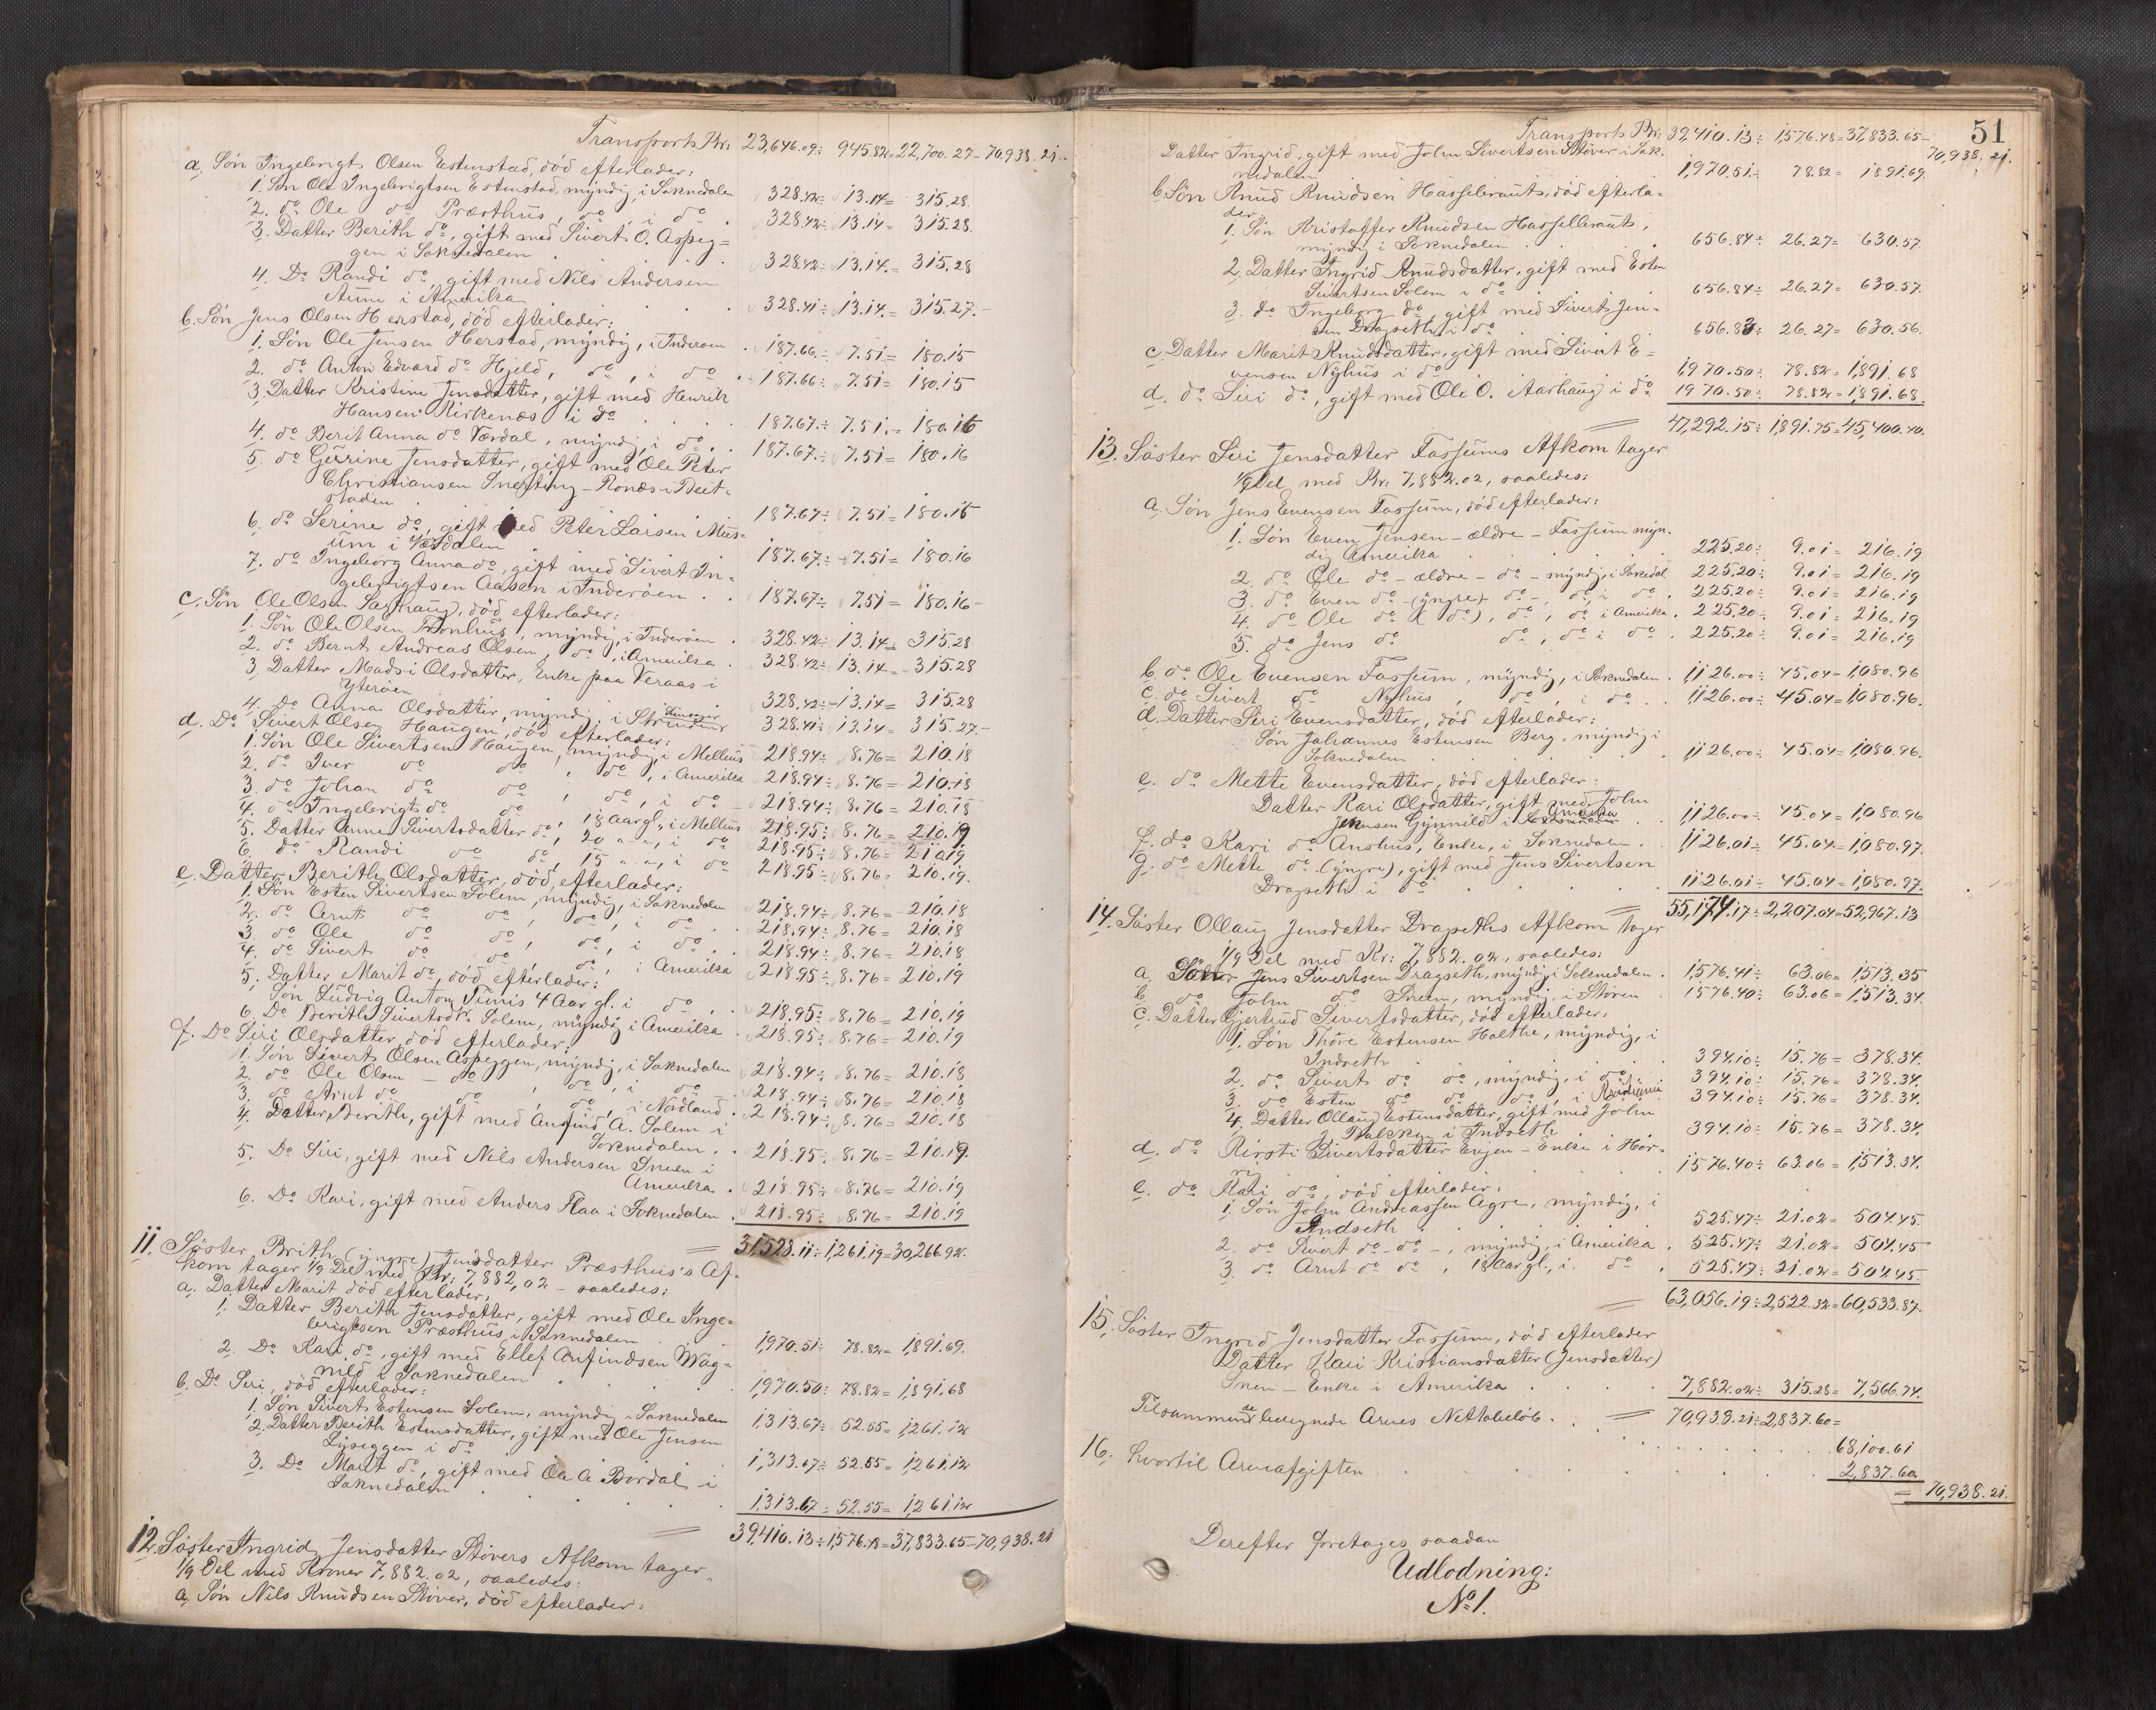 Transport Kr: 23,646.09 ÷ 945.82 = 22,700.27 – 70,938.21.
a. Søn Ingebrigt Olsen Estenstad, død efterlader:
1. Søn Ole Ingebrigtsen Estenstad, myndig, i Soknedalen 328.42 ÷ 13.14 = 315.28.
2. do Ole do Præsthus, do, i do. 328.42 ÷ 13.14 = 315.28.
3. Datter Berith do, gift med Sivert O. Aspeg=
gen i Soknedalen 328.42 ÷ 13.14. = 315.28
4. Do Randi do, gift med Nils Andersen
Aune i Amerika 328.41 ÷ 13.14. = 315.27.–
b. Søn Jens Olsen Herstad, død efterlader:
1. Søn Ole Jensen Herstad, myndig, i Inderøen . 187.66. ÷ 7.51 = 180.15
2. do Anton Edvard do Hjeld, do, i do . 187.66 ÷ 7.51 = 180.15
3. Datter Kristine Jensdatter, gift med Henrik
Hansen Kirkenæs i do . . . . 187.67. ÷ 7.51. = 180.16
4. do Berit Anna do Værdal, myndig, i do. . 187.67. ÷ 7.51 = 180.16
5. do Gurine Jensdatter, gift med Ole Peter
Christiansen – Ronæs i Beit=
staden . 187.67 ÷ 7.51 = 180.16
6. do Serine do, gift med Peter Larsen Mus=
um i Værdalen 187.67. ÷ 7.51 = 180.16
7. do Ingeborg Anna do, gift med Sivert In=
gebrigtsen Aasen i Inderøen . . 187.67 ÷ 7.51 = 180.16 –
c. Søn Ole Olsen død efterlader:
1. Søn Ole Olsen Tronhus, myndig, i Inderøen . 328.42 ÷ 13.14 = 315.28
2. do Bernt Andreas Olsen, do, i Amerika . 328.42 ÷ 13.14 = 315.28
3. Datter Madsi Olsdatter, Enke paa Veraas i
Ytterøen 328.42 ÷ 13.14 = 315.28
4. do Anna Olsdatter, myndig, i 328.41 ÷ 13.14 = 315.27.–
d. Do Sivert Olsen Haugen, død efterlader:
1. Søn Ole Sivertsen Haugen, myndig, i Melhus 218.94 ÷ 8.76 = 210.18
2. do Iver do do, do, i Amerika 218.94 ÷ 8.76 = 210.18
3. do Johan do do, do, i do – 218.94 ÷ 8.76 = 210.18
4. do Ingebrigt do do, 18 Aar gl., i Melhus 218.95 ÷ 8.76 = 210.19
5. Datter Anne Sivertsdatter do, 20 " ", i do 218.95 ÷ 8.76 = 210.19
6. do Randi do do, 15 " ", i do 218.95 ÷ 8.76 = 210.19.
e. Datter Berith Olsdatter, død, efterlader:
1. Søn Esten Sivertsen Solem, myndig, i Soknedalen 218.94 ÷ 8.76 = 210.18
2. do Arnt do do, do, i do . 218.94 ÷ 8.76 = 210.18
3. do Ole do do, do, i do . 218.94 ÷ 8.76 = 210.18
4. do Sivert do do, do, i Amerika 218.95 ÷ 8.76 = 210.19
5. Datter Marit do, død, efterlader:
Søn Ludvig Anton Tunis 4 Aar gl. i do . 218.95 ÷ 8.76 = 210.19
6. Do Berith Sivertsdtr. Solem, myndig i Amerika . 218.95 ÷ 8.76 = 210.19
f. Do Siri Olsdatter, død efterlader:
1. Søn Sivert Olsen Aspeggen, myndig, i Soknedalen 218.94 ÷ 8.76 = 210.18
2. do Ole Olsen – do, do, i do . 218.94 ÷ 8.76 = 210.18
3. do Arnt do do, do, i Nordland . 218.94 ÷ 8.76 = 210.18
4. Datter Berith, gift med Anfind A. Solem i
Soknedalen . . 218.95 ÷ 8.76 = 210.19.
5. Do Siri, gift med Nils Andersen Sneen i
Amerika . 218.95 ÷ 8.76 = 210.19
6. Do Kari, gift med Anders Flaa i Soknedalen . 218.95 ÷ 8.76 = 210.19
= 31,528.11 ÷ 1,261.19 = 30,266.92.
11. Søster, Brith (yngre) Jensdatter Præsthus's Af=
kom tager 1/9 Del med Kr: 7,882,02 – saaledes:
a. Datter Marit død efterlader,
1. Datter Berith Jensdatter, gift med Ole Inge=
brigtsen Præsthus i Soknedalen . 1,970.51 ÷ 78.82 = 1,891.69.
2. Do Kari do, gift med Ellef Anfindsen Wag=
nild i Soknedalen . . . . 1,970.50 ÷ 78.82 = 1,891.68
b. Do Siri, død efterlader:
1. Søn Sivert Estensen Solem, myndig i Soknedalen 1,313.67 ÷ 52.55 = 1,261.12
2. Datter Berith Estensdatter, gift med Ole Jensen
Lyseggen i do 1,313.67 ÷ 52.55 = 1,261.12
3. Do Marit do, gift med Ole A. Bordal i
Soknedalen . . . . . 1,313.67 ÷ 52.55 = 1,261.12
= 39,410.13 ÷ 1,576.48 = 37,833.65 – 70,938.21
12. Søster Ingrid Jensdatter Støvers Afkom tager
1/9 Del med Kroner 7,882.02, saaledes:
a. Søn Nils Knudsen Støver, død efterlader:
51
Transport Kr: 39,410.13 ÷ 1,576.48 = 37,833.65 –
70,938.21.
Datter Ingrid, gift med John Sivertsen Støver i Sok=
nedalen 1,970.51 ÷ 78.82 = 1891.69.
b. Søn Knud Knudsen Hasselbraut, død efterla=
der,
1. Søn Kristoffer Knudsen Hasselbraut,
myndig i Soknedalen . . . . 656.84 ÷ 26.27 = 630.57.
2. Datter Ingrid Knudsdatter, gift med Esten
Sivertsen Solem i do 656.84 ÷ 26.27 = 630.57.
3. do Ingeborg do, gift med Sivert Jen=
sen Dragseth i do 656.83 ÷ 26.27 = 630.56.
c. Datter Marit Knudsdatter, gift med Sivert E=
vensen Nyhus i do 1,970.50 ÷ 78.82 = 1,891.68
d. do Siri do, gift med Ole O. Aarhaug i do 1970.50 ÷ 78.82 = 1,891.68.
= 47,292.15 ÷ 1,891.75 = 45,400.40.
13. Søster Siri Jensdatter Fossums Afkom tager
1/9 Del med Kr: 7,882.02, saaledes:
a. Søn Jens Evensen Fossum, død efterlader:
1. Søn Even Jensen – ældre – Fossum myn.
dig Amerika . . . . . 225.20 ÷ 9.01 = 216.19
2. do Ole do – ældre – do – myndig, i Soknedal 225.20 ÷ 9.01 = 216.19
3. do Even do – (yngre) do –, do, i do . 225.20 ÷ 9.01 = 216.19
4. do Ole do ( do), do, do i Amerika . 225.20 ÷ 9.01 = 216.19
5. do Jens do do, do i do . 225.20 ÷ 9.01 = 216.19
b. do Ole Evensen Fossum, myndig, i Soknedalen . 1126.00 ÷ 45.04 = 1,080.96
c. do Sivert do Nyhus, do, i do . . 1,126.00 ÷ 45.04 = 1,080.96.
d. Datter Siri Evensdatter, død efterlader:
Søn Johannes Estensen Berg, myndig i
Soknedalen . . . . . . 1126.00 ÷ 45.04 = 1,080.96.
e. do Mette Evensdatter, død efterlader:
Datter Kari Olsdatter, gift med John
Jensen Gynnild i Amerika . 1126.00 ÷ 45.04 = 1,080.96
f. do Kari do Aushus, Enke, i Soknedalen . . 1126.01 ÷ 45.04 = 1,080.97.
g. do Mette do (yngre), gift med Jens Sivertsen
Dragseth i do . . . . . 1126.01 ÷ 45.04 = 1,080.97.
= 55,174.17 ÷ 2,207.04 = 52,967.13
14. Søster Ollaug Jensdatter Dragseths Afkom tager
1/9 Del med Kr: 7,882.02, saaledes:
a. Søn Jens Sivertsen Dragseth, myndig i Soknedalen . 1,576.41 ÷ 63.06 = 1,513.35
b. do John do Sneen, myndig, i Støren 1576.40 ÷ 63.06 = 1,513.34.
c. Datter Gjertrud Sivertsdatter, død efterlader,
1. Søn Thore Estensen Holthe, myndig, i
Indseth . . . . . . 394.10 ÷ 15.76 = 378.34.
2. do Sivert do do, myndig, i do . 394.10 ÷ 15.76 = 378.34.
3. do Esten do do, do, i 394.10 ÷ 15.76 = 378.34.
4. Datter Ollaug Estensdatter, gift med John
J. i Indseth . . . 394.10 ÷ 15.76 = 378.34.
d. do Kirsti Sivertsdatter Engen – Enke i Hor=
rig . . . . . 1576.40 ÷ 63.06 = 1,513.34.
e. do Kari do, død efterlader:
1. Søn John Andreassen Agre, myndig, i
Indseth . . . . . 525.47 ÷ 21.02 = 504.45.
2. do Sivert do – do –, myndig, i Amerika . 525.47 ÷ 21.02 = 504.45
3. do Arnt do do, 18 Aar gl., i do . 525.47 ÷ 21.02 = 504.45.
= 63,056.19 ÷ 2,522.32 = 60,533.87.
15. Søster Ingrid Jensdatter Fossum, død efterlader
Datter Kari Kristiansdatter (Jensdatter)
Snen – Enke i Amerika . . . . 7,882.02 ÷ 315.28 = 7,566.74.
Tilsammen de beregnede Arves Nettobeløb . . = 70,938.21 ÷ 2,837.60 =
68,100.61
16. hvortil Arveafgiften . . . . . 2,837.60
= 70,938.21.
Derefter foretages saadan
Udlodning:
No 1.